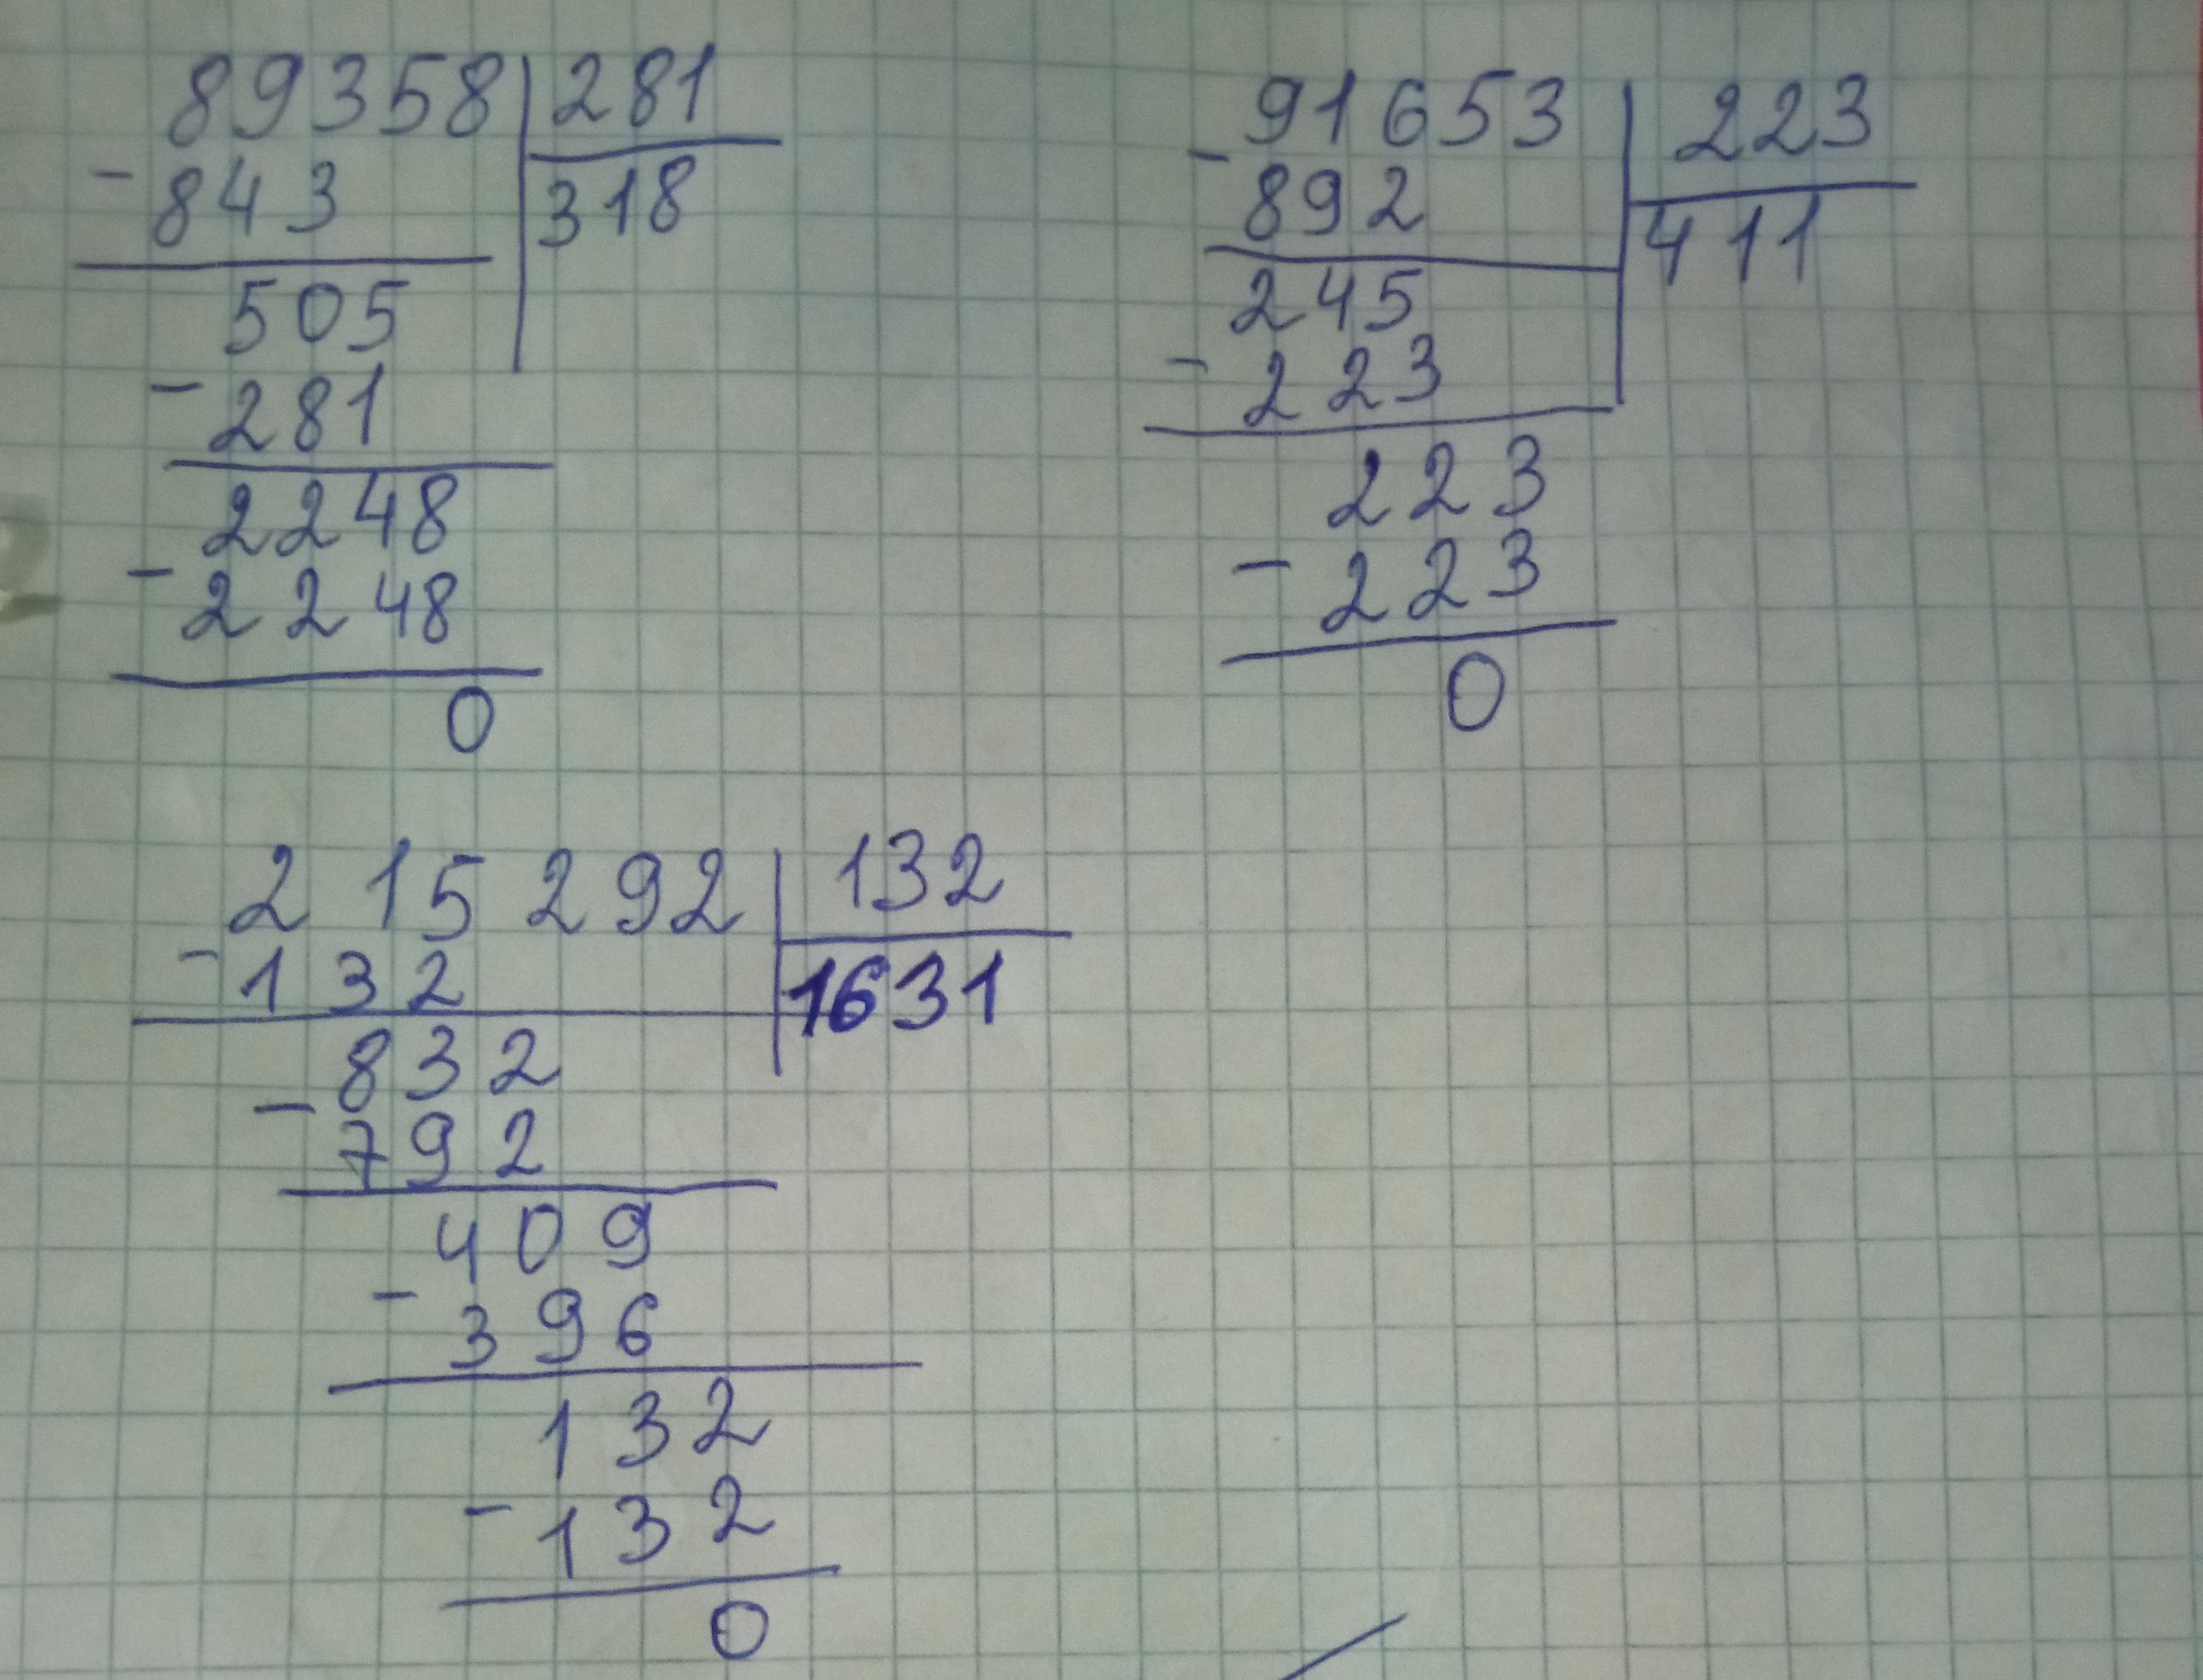 89358 281
- 843 318
505
- 281
2248
- 2248
0
91653 223
- 892 411
245
- 223
223
- 223
0
215292 132
- 132 1631
832
- 792
409
- 396
132
- 132
0